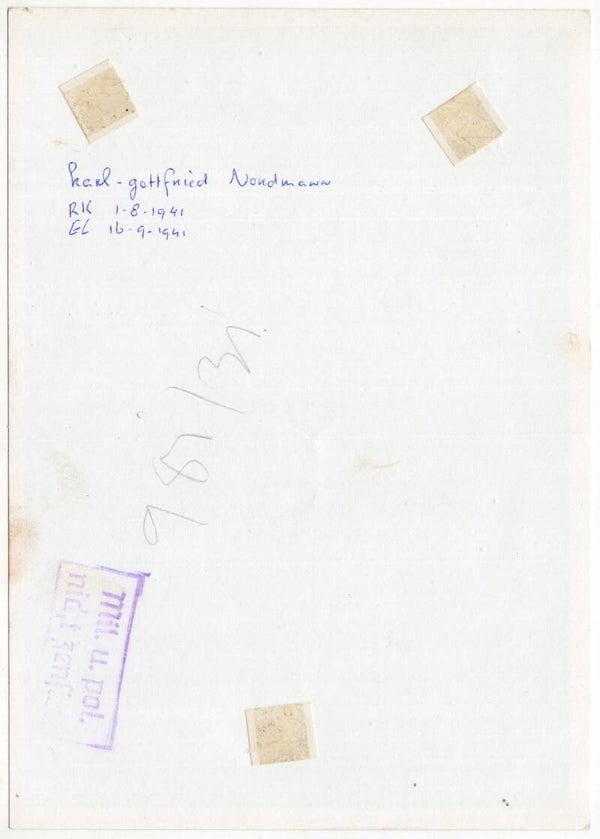 Karl-gottfried Nordmann
RK 1-8-1941
EL 16-9-1941
981/31
mil. u. pol.
nicht zens.